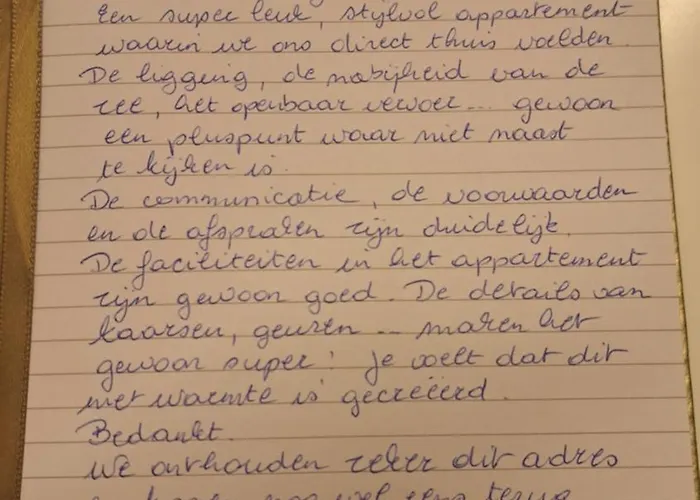 Een super leuk, stijlvol appartement
waarin we ons direct thuis voelden.
De ligging, de nabijheid van de
zee, het openbaar vervoer... gewoon
een pluspunt waar niet naast
te kijken is.
De communicatie, de voorwaarden
en de afspraken zijn duidelijk.
De faciliteiten in het appartement
zijn gewoon goed. De details van
kaarsen, geuren ... maken het
gewoon super! Je voelt dat dit
met warmte is gecreëerd.
Bedankt.
We onthouden zeker dit adres
nog wel eens terug